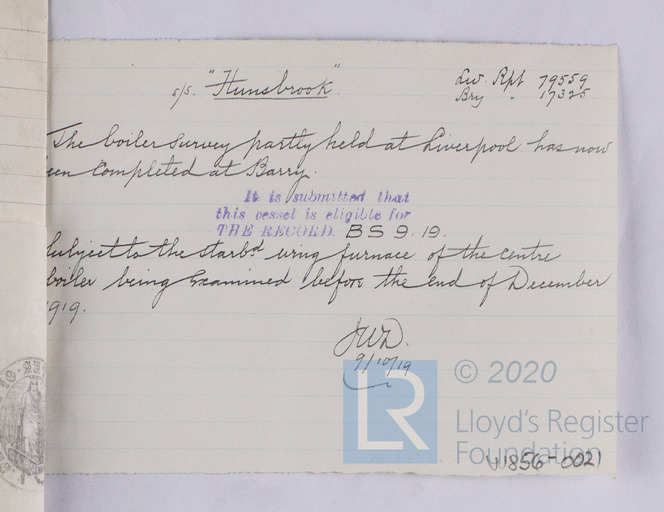 s/s. "Hunsbrook".
Liv. Rpt 79559
Bry " 17325
The boiler survey partly held at Liverpool has now
een completed at Barry.
It is submitted that
this vessel is eligible for
THE RECORD. BS 9.19.
Subject to the starbd wing furnace of the centre
boiler being examined before the end of December
1919.
JWD.
9/10/19
LR
© 2020
Lloyd's Register
Foundation
W856-0021